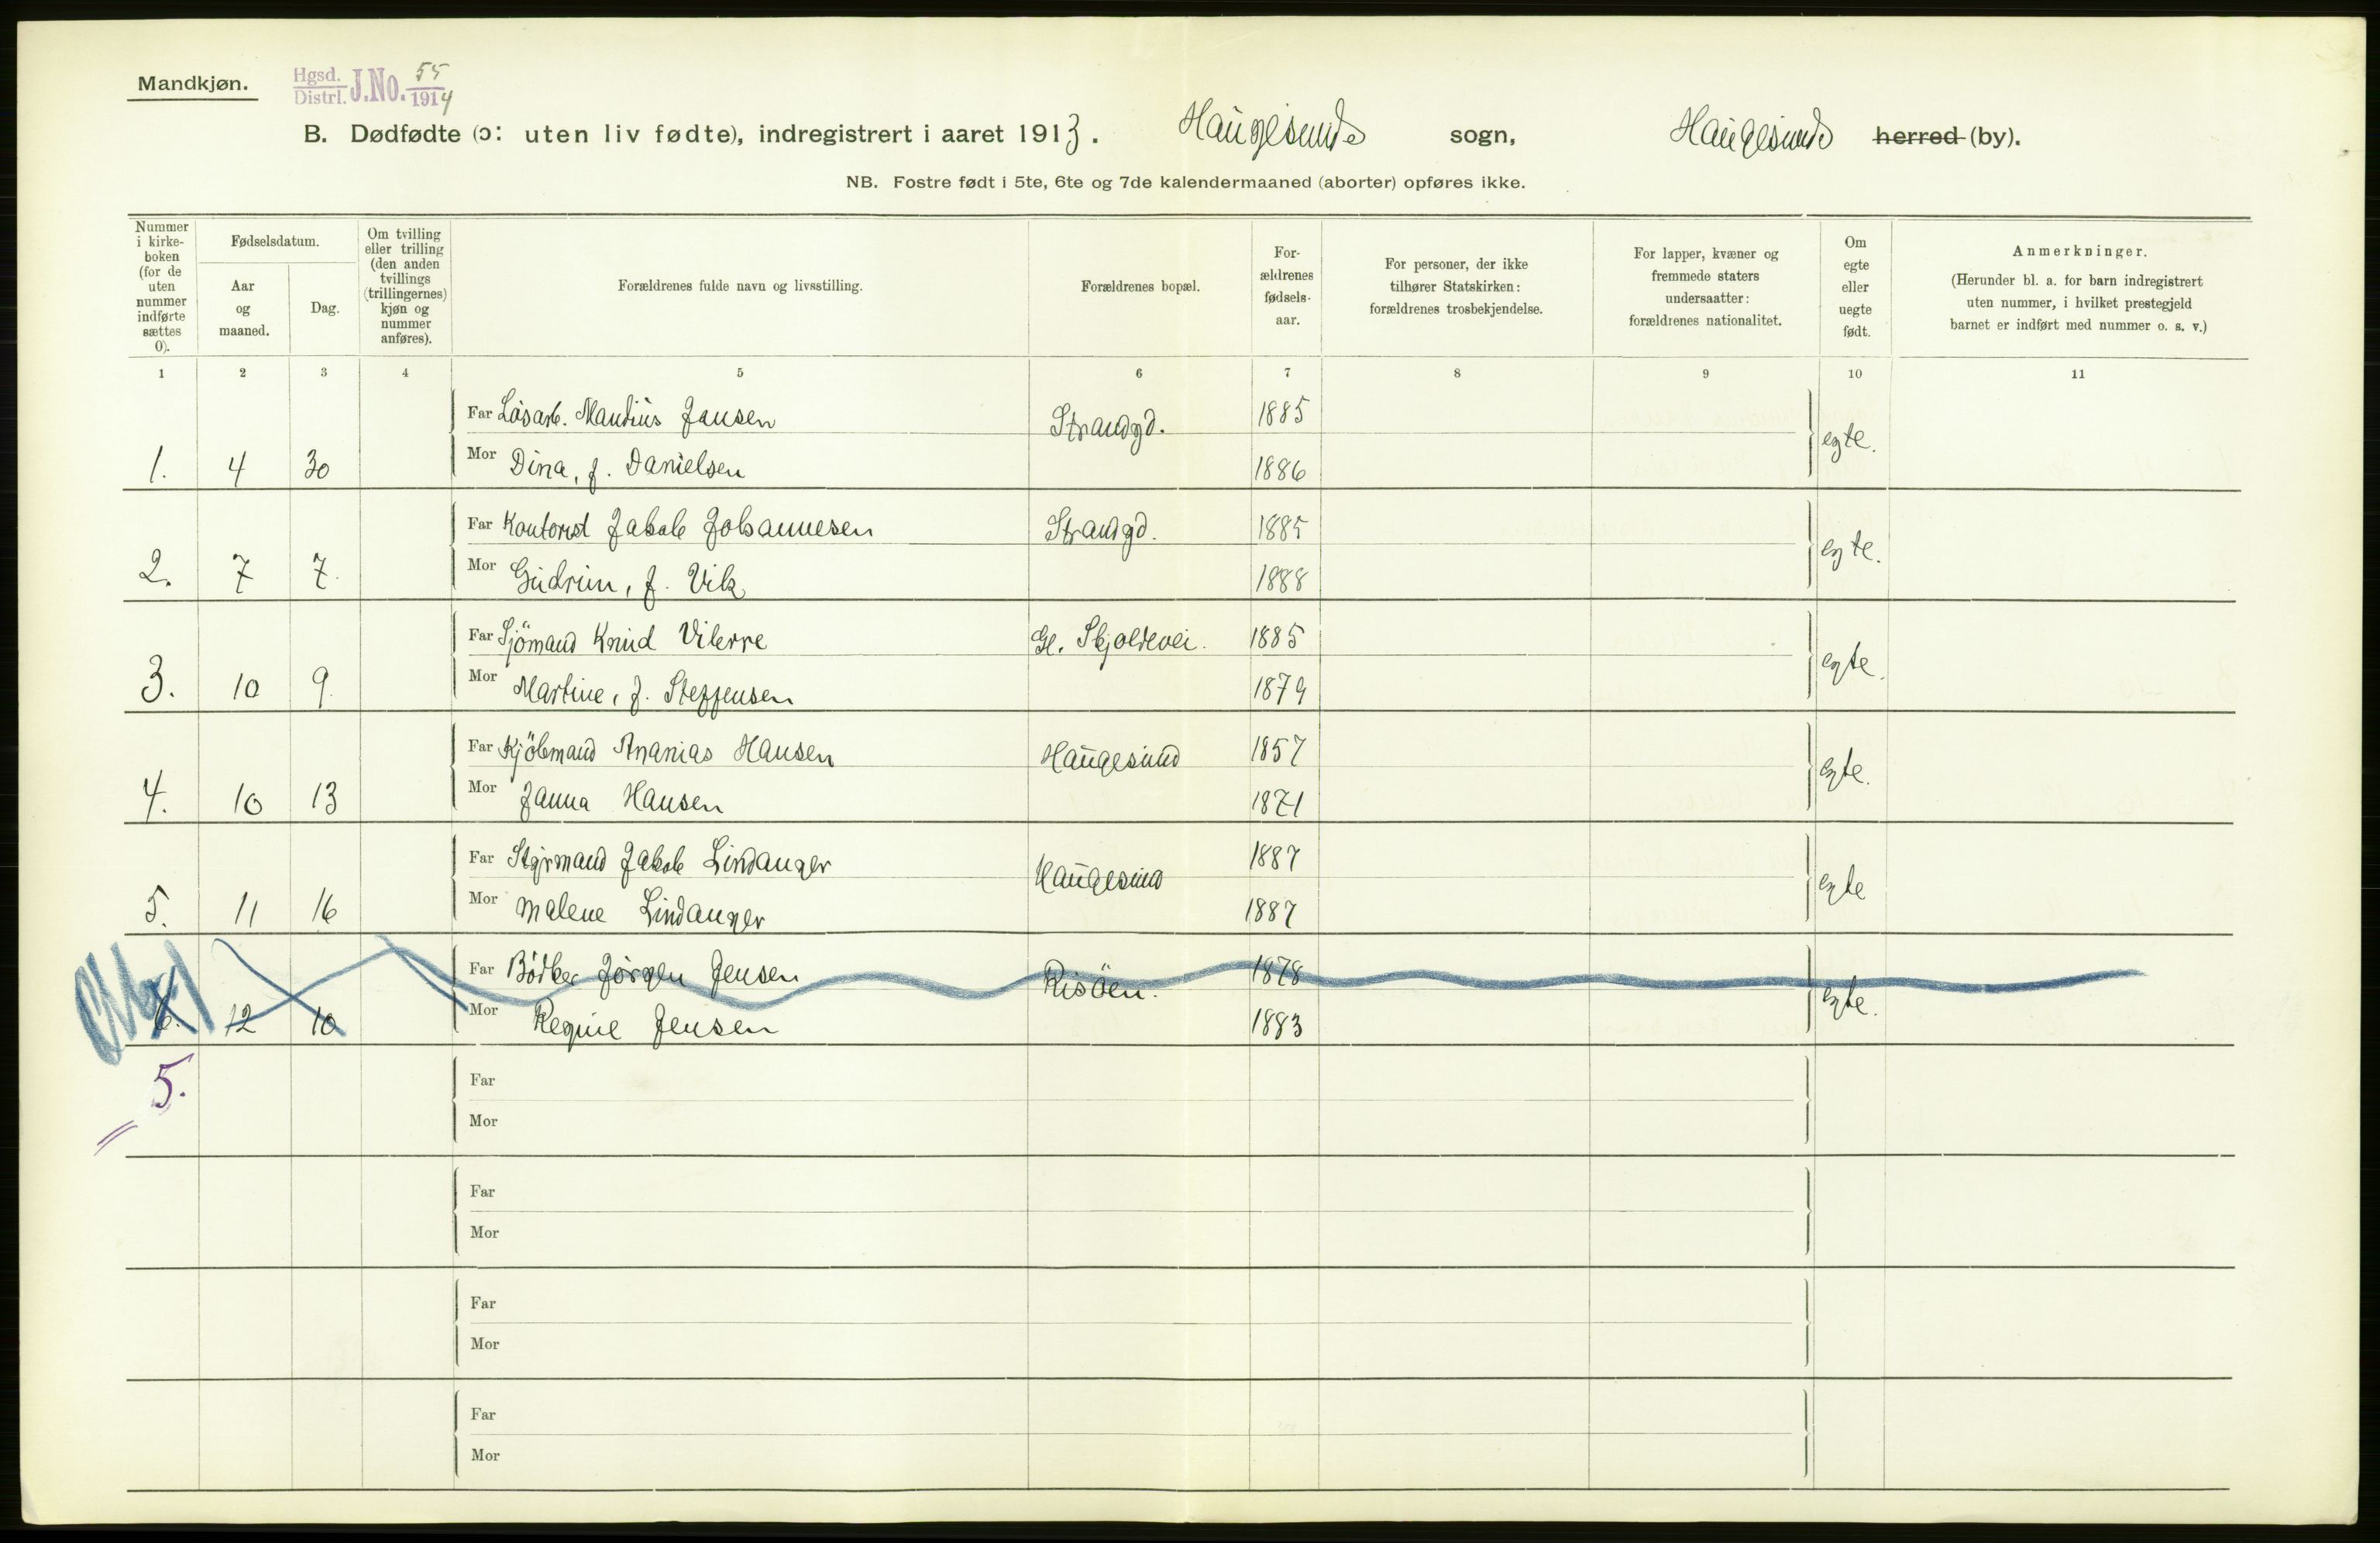 Mandkjøn.
Hgsd. Distrl. J.No. 55 1914
B. Dødfødte (ɔ: uten liv fødte), indregistrert i aaret 1913. Haugesunds sogn, Haugesunds herred (by).
NB. Fostre født i 5te, 6te og 7de kalendermaaned (aborter) opføres ikke.
Nummer i kirkeboken (for de uten nummer indførte sættes 0).
Fødselsdatum.
Aar og maaned.
Dag.
Om tvilling eller trilling (den anden tvillings (trillingernes) kjøn og nummer anføres).
Forældrenes fulde navn og livsstilling.
Forældrenes bopæl.
Forældrenes fødselsaar.
For personer, der ikke tilhører Statskirken: forældrenes trosbekjendelse.
For lapper, kvæner og fremmede staters undersaatter: forældrenes nationalitet.
Om egte eller uegte født.
Anmerkninger.
(Herunder bl. a. for barn indregistrert uten nummer, i hvilket prestegjeld barnet er indført med nummer o. s. v.)
1 2 3 4 5 6 7 8 9 10 11
Far Løsarb. Mandius Jansen Strandgd. 1885
1. 4 30 Mor Dina, f. Danielsen 1886 egte.
Far Kontorist Jakob Johannesen Strandgd. 1885
2. 7 7. Mor Gudrun, f. Vik 1888 egte.
Far Sjömand Knud Vikerre Gl. Skjoldevei. 1885
3. 10 9. Mor Martine, f. Steffensen 1879 egte.
Far Kjöbmand Ananias Hansen Haugesund 1857
4. 10 13 Mor Janna Hansen 1871 egte.
Far Styrmand Jakob Lindanger Haugesund 1887
5. 11 16 Mor Malene Lindanger 1887 egte
Far Bödker Jørgen Jensen Risöen. 1878
6. 12 10 Mor Regine Jensen 1883 egte.
5.
Far
Mor
Far
Mor
Far
Mor
Far
Mor